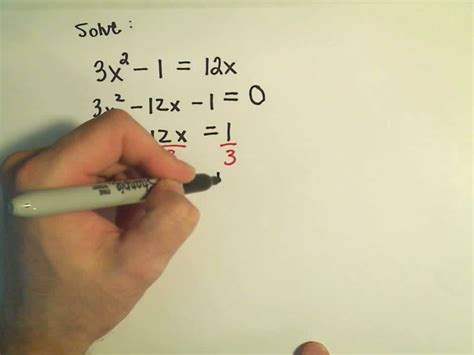 Solve:
3x² - 1 = 12x
3x² - 12x - 1 = 0
12x = 1
3
Sharpie